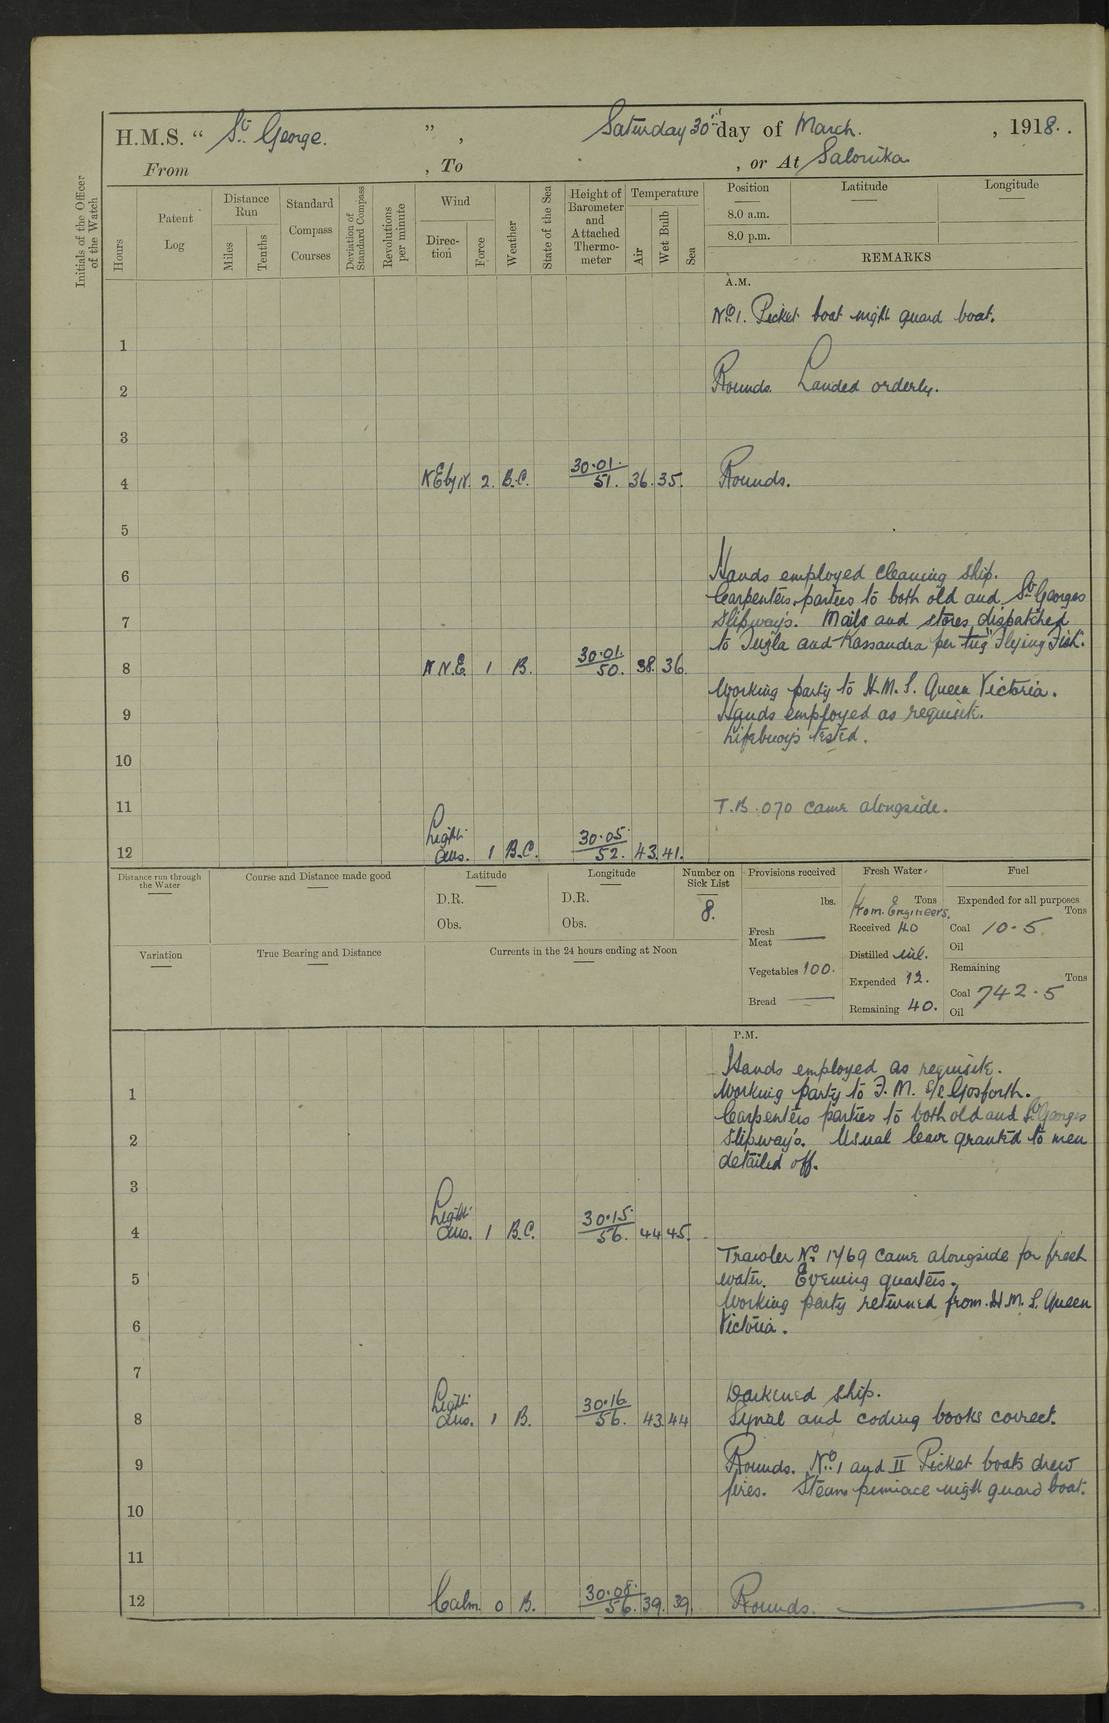 H.M.S. “ St. George. ” , Saturday 30th day of March. , 1918..
From , To , or At Salonika
Initials of the Officer of the Watch
Hours
Patent Log
Distance Run
Miles
Tenths
Standard Compass Courses
Deviation of Standard Compass
Revolutions per minute
Wind
Direction
Force
Weather
State of the Sea
Height of Barometer and Attached Thermometer
Temperature
Air
Wet Bulb
Sea
Position
Latitude
Longitude
8.0 a.m.
8.0 p.m.
REMARKS
A.M.
No. 1. Picket boat night guard boat.
1
2 Rounds. Landed orderly.
3
4 N E by N. 2. B.C. 30·01. 51. 36. 35. Rounds.
5
6 Hands employed cleaning ship.
Carpenters parties to both old and St. Georges
7 Slipways. Mails and stores dispatched
to Tuzla and Kassandra per tug "Flying Fish".
8 N N.E. 1 B. 30·01. 50. 38. 36.
Working party to H.M.S. Queen Victoria.
9 Hands employed as requisite.
Lifebuoys tested.
10
11 T.B. 070 came alongside.
12 Light airs. 1 B.C. 30·05. 52. 43. 41.
Distance run through the Water
Course and Distance made good
Latitude
D.R.
Obs.
Longitude
D.R.
Obs.
Number on Sick List
8.
Provisions received
lbs.
Fresh Meat —
Vegetables 100.
Bread —
Fresh Water.
Tons
From Engineers.
Received 40
Distilled nil.
Expended 12.
Remaining 40.
Fuel
Expended for all purposes
Tons
Coal 10·5.
Oil
Remaining
Tons
Coal 742·5
Oil
Variation
True Bearing and Distance
Currents in the 24 hours ending at Noon
P.M.
Hands employed as requisite.
1 Working party to F.M. S/S Gosforth.
Carpenters parties to both old and St. Georges
2 Slipways. Usual leave granted to men
detailed off.
3
4 Light airs. 1 B.C. 30·15. 56. 44 45.
Trawler No. 1769 came alongside for fresh
5 water. Evening quarters.
Working party returned from H.M.S. Queen
6 Victoria.
7
Darkened ship.
8 Light airs. 1 B. 30·16 56. 43. 44 Signal and coding books correct.
9 Rounds. No. 1 and II Picket boats drew
fires. Steam pinnace night guard boat.
10
11
12 Calm. 0 B. 30·08. 56. 39. 39. Rounds.